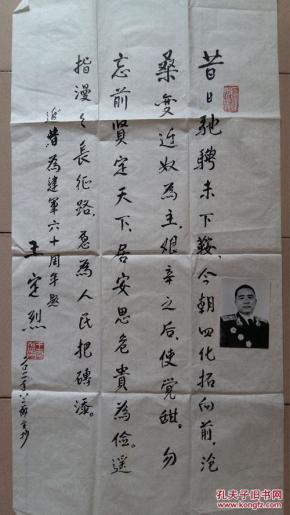 昔日驰骋未下鞍,今朝四化拓向前,沧
桑变迁奴为主,艰辛之后使觉甜。勿
忘前贤定天下,居安思危贵为俭。遥
指漫々长征路,愿为人民把砖添。
为建军六十周年题
王定烈
孔夫子旧书网